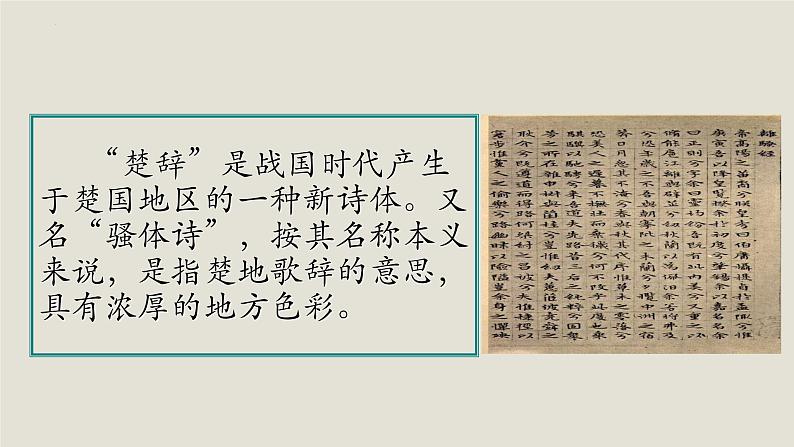 “楚辞”是战国时代产生
于楚国地区的一种新诗体。又
名“骚体诗”，按其名称本义
来说，是指楚地歌辞的意思，
具有浓厚的地方色彩。
離騷經
帝高陽之苗裔兮朕皇考曰伯庸攝提貞於孟陬兮惟
庚寅吾以降皇覽揆余於初度兮肇錫余以嘉名名余
曰正則兮字余曰靈均紛吾既有此內美兮又重之以
脩能扈江離與辟芷兮紉秋蘭以為佩汩余若將弗及
兮恐年歲之不吾與朝搴阰之木蘭兮夕攬中洲之宿
莽日月忽其不淹兮春與秋其代序惟草木之零落兮
恐美人之遲暮不撫壯而棄穢兮何不改乎此度也
騏驥以馳騁兮來吾道夫先路昔三后之純粹兮固眾
芳之所在雜申椒與菌桂兮豈維紉夫蕙茝彼堯舜之
耿介兮既遵道而得路何桀紂之兮夫惟捷徑以
窘步惟黨人之偷樂兮路幽昧以險隘豈余身之憚殃